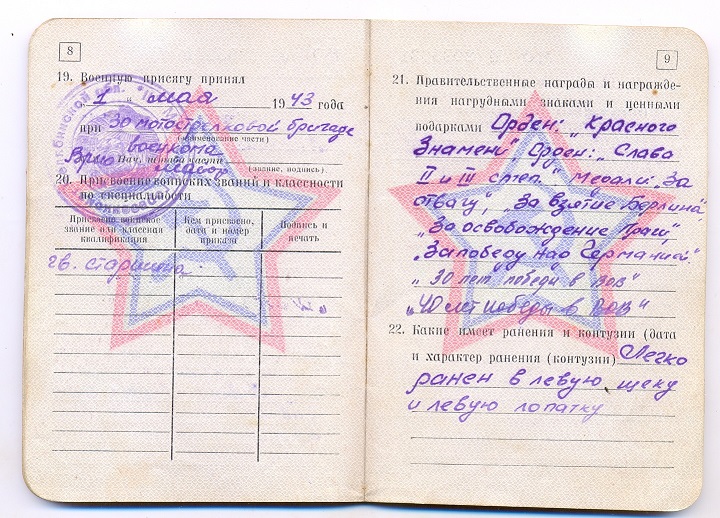 8
19. Военную присягу принял
„ 1 “ мая 1943 года
при 30 мотострелковой бригаде
(наименование части)
Врио военкома майор
Нач. штаба части (звание, подпись)
20. Присвоение воинских званий и классности
по специальности
Присвоено воинское звание или классная квалификация
Кем присвоено, дата и номер приказа
Подпись и печать
гв. старшина
9
21. Правительственные награды и награжде-
ния нагрудными знаками и ценными
подарками Орден: „Красного
Знамени", Орден: „Слава
II и III степ." медали: „За
отвагу", „За взятие Берлина"
„За освобождение Праги",
„За победу над Германией"
„30 лет победы в ВОВ"
„40 лет победы в ВОВ"
22. Какие имеет ранения и контузии (дата
и характер ранения (контузии) Легко
ранен в левую щеку
и левую лопатку